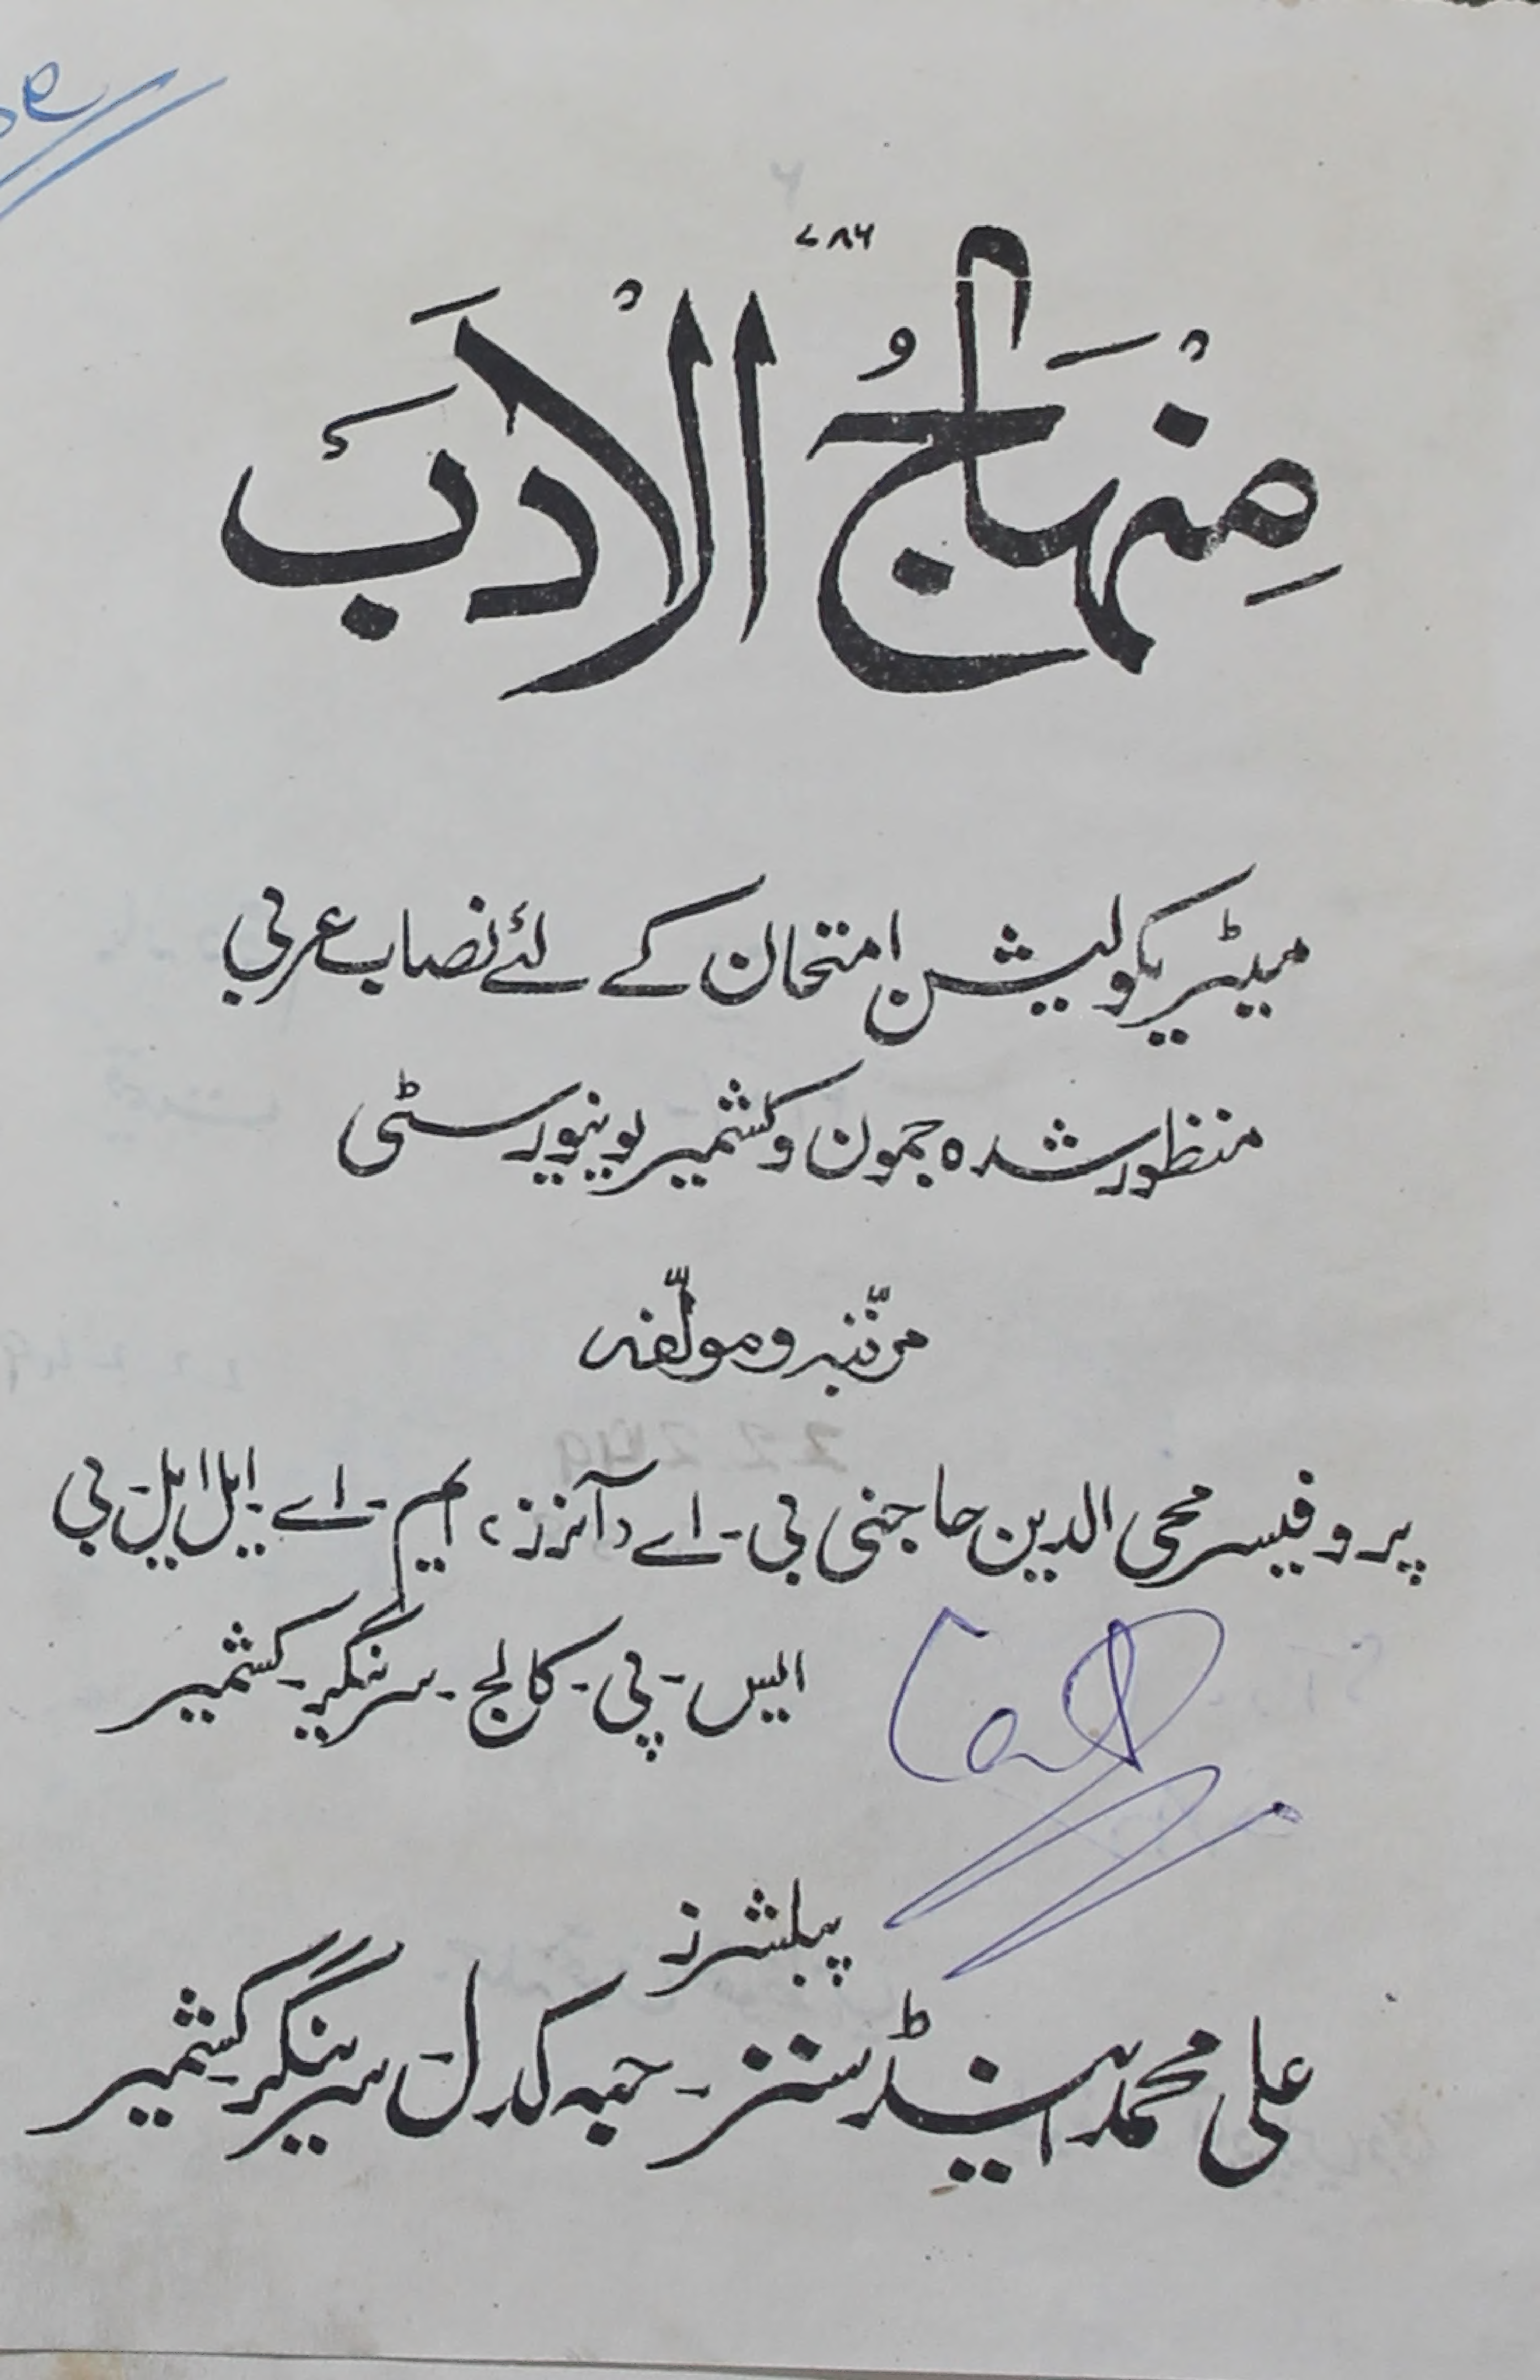 ۷۸۶
مِنْہَاجُ الْاَدَبَ
میٹریکولیشن امتحان کے لئے نصاب عربی
منظور شدہ جموں و کشمیر یونیورسٹی
مرتّبہ و مولّفہ
پروفیسر محی الدین حاجنی بی۔ اے (آنرز) ایم۔ اے۔ ایل ایل۔ بی
ایس۔ پی۔ کالج۔ سرینگر۔ کشمیر
پبلشرز
علی محمد اینڈ سنز۔ حبہ کدل۔ سرینگر۔ کشمیر